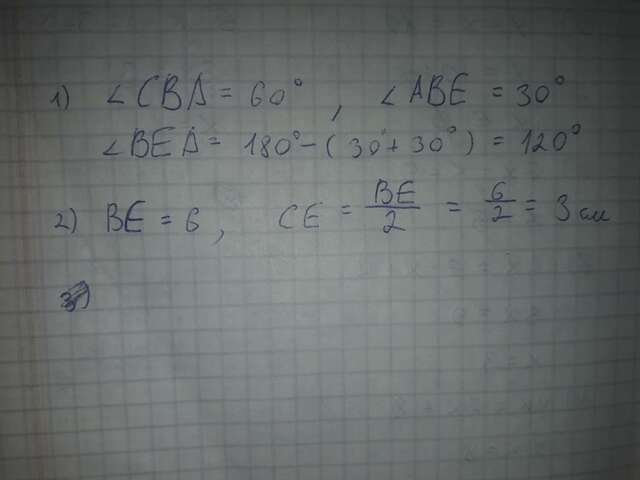 1) ∠CBA = 60° , ∠ABE = 30°
∠BEA = 180° - ( 30° + 30° ) = 120°
2) BE = 6 , CE = BE/2 = 6/2 = 3 см
3)